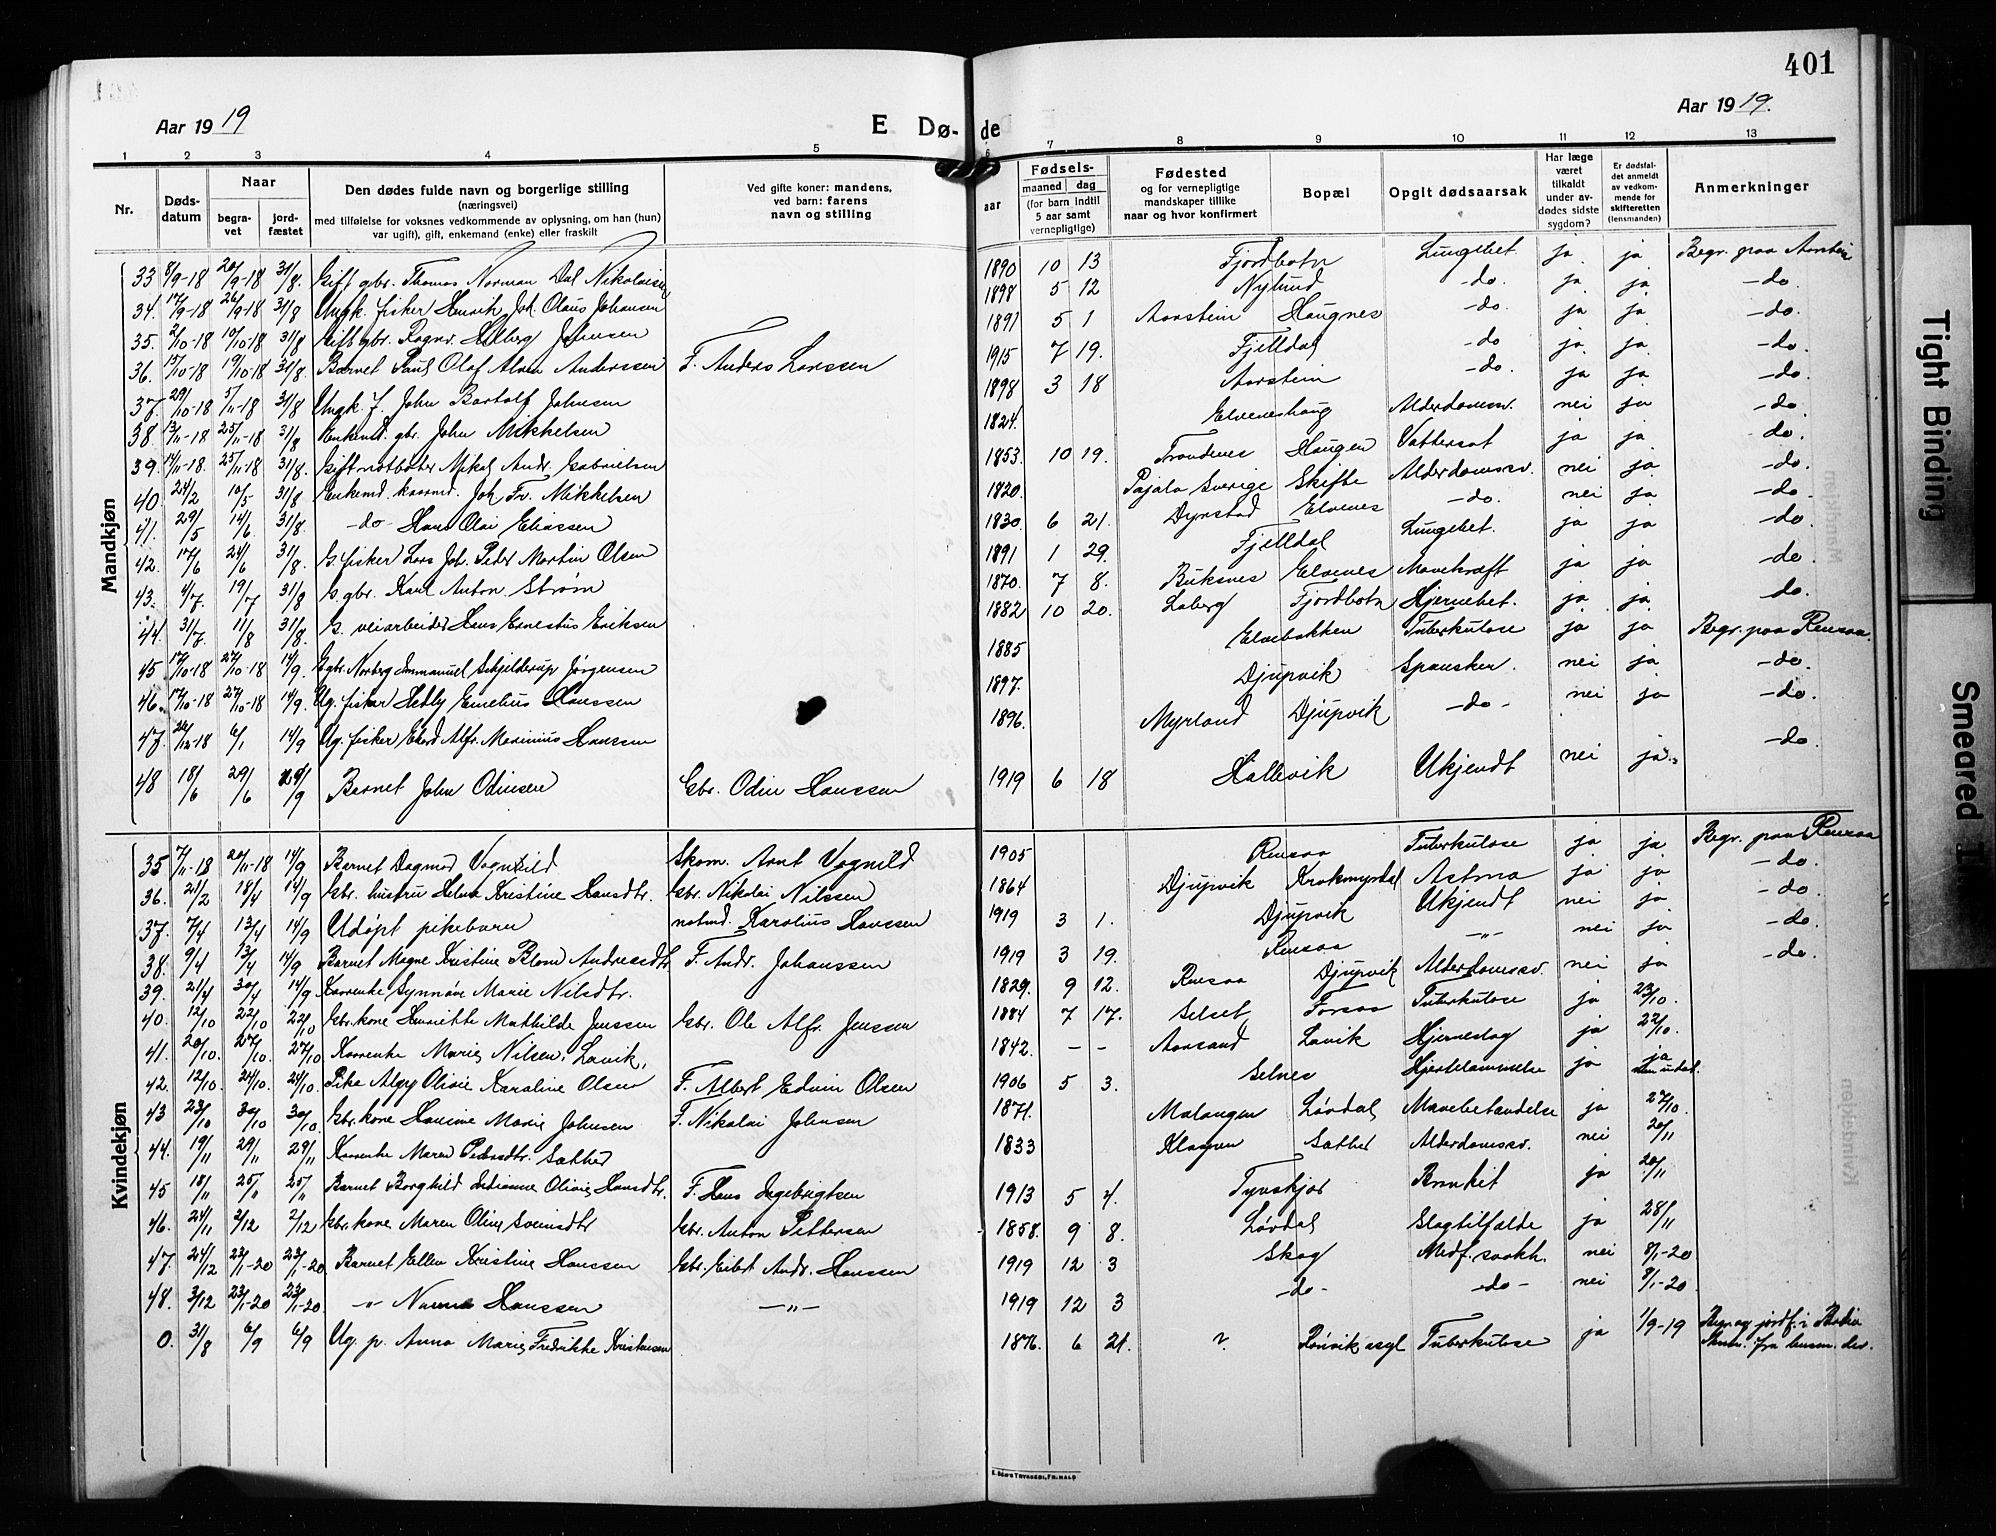 401
Aar 1919
E Dø-
de
Aar 1919.
1 2 3 4 5 6 7 8 9 10 11 12 13
Nr.
Døds-
datum
Naar
begra-
vet
jord-
fæstet
Den dødes fulde navn og borgerlige stilling
(næringsvei)
med tilføielse for voksnes vedkommende av oplysning, om han (hun)
var ugift), gift, enkemand (enke) eller fraskilt
Ved gifte koner: mandens,
ved barn: farens
navn og stilling
Fødsels-
aar
maaned dag
(for barn indtil
5 aar samt
vernepligtige)
Fødested
og for vernepligtige
mandskaper tillike
naar og hvor konfirmert
Bopæl
Opgit dødsaarsak
Har læge
været
tilkaldt
under av-
dødes sidste
sygdom?
Er dødsfal-
det anmeldt
av vedkom-
mende for
skifteretten
(lensmanden)
Anmerkninger
Mandkjøn
33 8/9-18 20/9-18 31/8. Gift gbr. Thomas Norman Dal Nikolaisen 1890 10 13 Fjordbotn Lungebet. ja ja Begr. paa Aarstein
34. 17/9-18 26/9-18 31/8 Ungk. fisker Henrik Joh. Olaus Johansen 1898 5 12 Nylund -do. ja ja -do.
35. 2/10-18 10/10-18 31/8 Gift gbr. Ragnv. Hilberg Johnsen 1891 5 1 Aarstein Haugnes -do. ja ja -do.
36. 15/10-18 19/10-18 31/8. Barnet Paul Olaf Alvin Anderssen F. Anders Larssen 1915 7 19. Fjelldal -do ja ja. -do.
37. 29/10-18 5/11-18 31/8 Ungk. f. John Bartolf Johnsen 1898 3 18 Aarstein -do. ja ja -do.
38. 13/11-18 25/11-18 31/8 Enkemd. gbr. John Mikkelsen 1824. Elveneshaug Alderdomssv. nei ja -do.
39. 14/11-18. 25/11-18 31/8. Gift notbøter Mikal Andr. Gabrielsen 1853. 10 19. Trondenes Haugen Vattersot ja ja -do.
40. 24/2 10/5 31/8 Enkemd. kaarmd. Joh. Fr. Mikkelsen 1820. Pajala Sverige Skifte Alderdomssv. nei ja -do.
41. 29/5 14/6 31/8. -do- Hans Olai Eliassen 1830. 6 21. Dyrstad Elvenes -do. nei ja -do.
42. 17/6 24/6 31/8. G. fisker Lars Joh. Peder Martin Olsen 1891 1 29. Fjelldal Lungebet. ja ja -do.
43. 4/7. 19/7 31/8 G. gbr. Karl Anton Strøm 1870. 7 8. Buksnes Elvenes Mavekræft ja ja -do.
44. 31/7. 11/8 31/8. G. veiarbeider Hans Ernestus Eriksen 1882 10 20. Laberg Fjordbotn Hjernebet. ja ja -do.
45 17/10-18 27/10-18 14/9. Ggbr. Norberg Immanuel Schjelderup Jørgensen 1885 Elvebakken Tuberkulose ja ja Begr. paa Rensaa
46. 17/10-18 27/10-18 14/9. Ug. fisker Hedly Emelius Hanssen 1897. Djupvik Spansken. nei ja -do.
47. 26/12-18 6/1 14/9 Ug. fisker Edvard Alfr. Marinius Hanssen 1896. Myrland Djupvik -do- nei ja -do.
48 18/6 29/6 29/9 Barnet John Odinsen Gbr. Odin Hanssen 1919 6 18 Hallevik Ukjendt nei ja. -do.
Kvindekjøn
35 7/11-18 20/11-18 14/9 Barnet Dagmar Vognild Skom. Arnt Vognild 1905 Rensaa Tuberkulose ja ja Begr. paa Rensaa
36. 21/2 18/4 14/9 Gbr. hustru Helene Kristine Hansdtr. Gbr. Nikolai Nilssen 1864 Djupvik Krokmyrdal Astma ja ja -do.
37. 7/4 13/4 14/9 Udøpt pikebarn notmd. Karolius Hanssen 1919 3 1. Djupvik Ukjendt nei ja -do.
38. 9/4 13/4 14/9 Barnet Magne Kristine Blom Andreasdtr F. Andr. Johanssen 1919 3 19. Rensaa -"- nei ja -do.
39. 21/4 30/4 14/9 Kaarenke Synnøve Marie Nilsdtr. 1829. 9 12. Rensaa Djupvik Alderdomssv. nei ja -do.
40. 12/10 22/10 22/10 Gbr. kone Henriette Mathilde Jenssen Gbr. Ole Alfr. Jenssen 1884 7 17. Selset Forsaa Tuberkulose ja 23/10.
41. 20/10. 27/10. 27/10 Kaarenke Marie Nilsen, Lavik, 1842. - - Aansand Lavik Hjerneslag ja 22/10.
42. 12/10 24/10. 24/10. Pike Algy Olivie Karoline Olsen F. Albert Edvin Olsen 1906 5 3. Selnes Hjertelammelse ja ja
43 23/10 30/10 30/10. Gbr. kone Hansine Marie Johnsen F. Nikolai Johnsen 1871. Malangen Løvdal Mavebetændelse ja 27/10.
44. 19/11 29/11 29/11 Kaarenke Maren Pedersdtr. Sæther 1833 Klagen Sæther Alderdomssv. nei 20/11
45 18/11 25/11 25/11 Barnet Borghild Indianne Olivie Hansdtr. F. Hans Ingebrigtsen 1913 5 4. Tynskjær Bronkit ja 20/11
46. 24/11 2/12 2/12 Gbr. kone Maren Oline Svensdtr Gbr. Anton Pettersen 1858. 9 8. Løvdal Slagtilfælde ja 28/11
47. 24/12 23/1-20 23/1-20. Barnet Ellen Kristine Hanssen Gbr. Eilert Andr. Hanssen 1919 12 3 Skog Medf. svakh. nei 8/1-20
48. 3/12 23/1-20 23/1-20. -"- Nanna Hanssen -"- 1919 12 3 -do- -do- nei 8/1-20
0. 31/8 6/9 6/9 Ug. p. Anna Marie Fredrikke Kristensen 1876. 6 21. ? Rønvik asyl Tuberkulose ja 1/9-19 Begr. og jordf. i Bodin
E. SEM'S TRYKKERI, FR.HALD
Tight Binding
Smeared